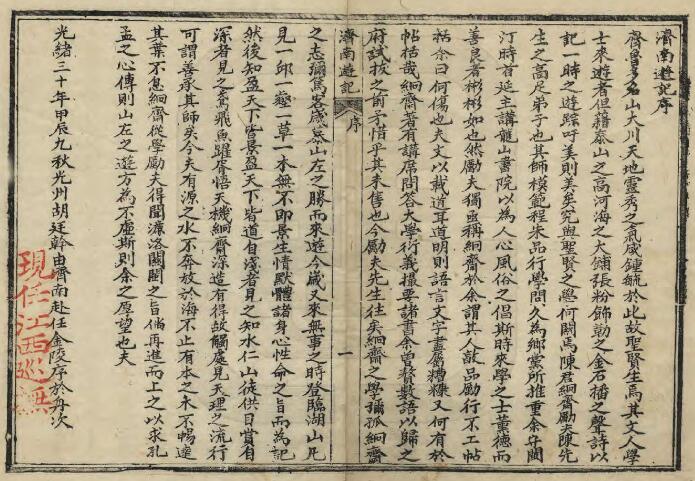 濟南遊記序
齊魯多名山大川天地靈秀之氣咸鍾毓於此故聖賢生焉其文人學
士來遊者但藉泰山之高河海之大鋪張粉飾勒之金石播之聲詩以
記一時之遊踪吁美則美矣究與聖賢之學何關焉陳君絅齋勵夫陳先
生之高足弟子也其師模範程朱品行學問久為鄉黨所推重余守閩
汀時曾延主講龍山書院以為人心風俗之倡斯時來學之士薰德而
善良者彬彬如也然勵夫獨亟稱絅齋於余謂其人敦品勵行不工帖
括余曰何傷也夫文以載道耳道明則語言文字盡屬糟粕又何有於
帖括哉絅齋著有講席問答大學衍義撮要諸書余曾贅數語以歸之
府試拔之前矛惜乎其未售也今勵夫先生往矣絅齋之學彌孤絅齋
濟南遊記 序 一
之志彌篤客歲慕山左之勝而來遊今歲又來無事之時登臨湖山凡
見一邱一壑一草一木無不即景生情默體諸身心性命之旨而為記
然後知盈天下皆景盈天下皆道自淺者見之知水仁山徒供目賞自
深者見之鳶飛魚躍胥悟天機絅齋深造有得故觸處見天理之流行
可謂善承其師矣今夫有源之水不奔放於海不止有本之木不暢達
其葉不息絅齋從學勵夫得聞濂洛關閩之旨倘再進而上之以求孔
孟之心傳則山左之遊方為不虛斯則余之厚望也夫
光緒三十年甲辰九秋光州胡廷幹由濟南赴任金陵序於舟次
現任江西巡撫